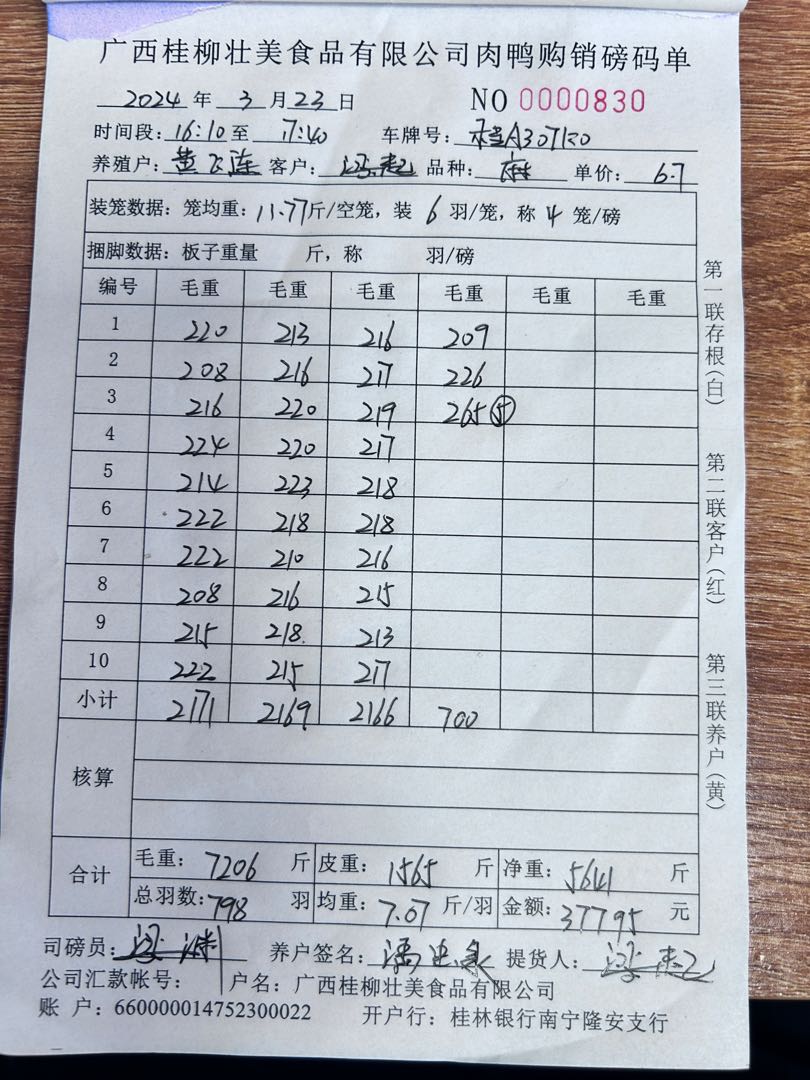 广西桂柳壮美食品有限公司肉鸭购销磅码单
2024 年 3 月 23 日 NO 0000830
时间段: 16:10 至 17:40 车牌号: 桂A307R0
养殖户: 黄飞连 客户: 品种: 麻 单价: 6.7
装笼数据: 笼均重: 11.77 斤/空笼, 装 6 羽/笼, 称 4 笼/磅
捆脚数据: 板子重量 斤, 称 羽/磅
编号 毛重 毛重 毛重 毛重 毛重 毛重
1 220 213 216 209
2 208 216 217 226
3 216 220 219 265 ⑤
4 224 220 217
5 214 223 218
6 222 218 218
7 222 210 216
8 208 216 215
9 215 218 213
10 222 215 217
小计 2171 2169 2166 700
核算
合计 毛重: 7206 斤 皮重: 1565 斤 净重: 5641 斤
总羽数: 798 羽 均重: 7.07 斤/羽 金额: 37795 元
司磅员: 养户签名: 提货人:
公司汇款帐号: 户名: 广西桂柳壮美食品有限公司
账 户: 660000014752300022 开户行: 桂林银行南宁隆安支行
第一联存根(白)
第二联客户(红)
第三联养户(黄)